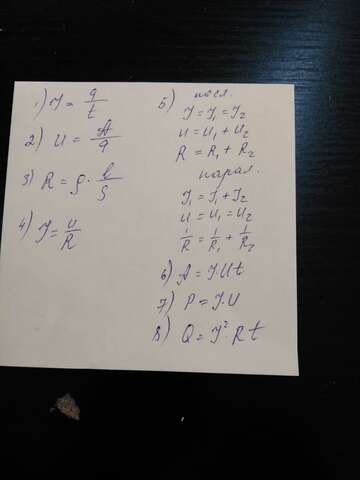 1) I = q/t
2) U = A/q
3) R = ρ · l/S
4) I = U/R
5) посл.
I = I₁ = I₂
U = U₁ + U₂
R = R₁ + R₂
парал.
I₁ = I₁ + I₂
U = U₁ = U₂
1/R = 1/R₁ + 1/R₂
6) A = I U t
7) P = I · U
8) Q = I² · R t